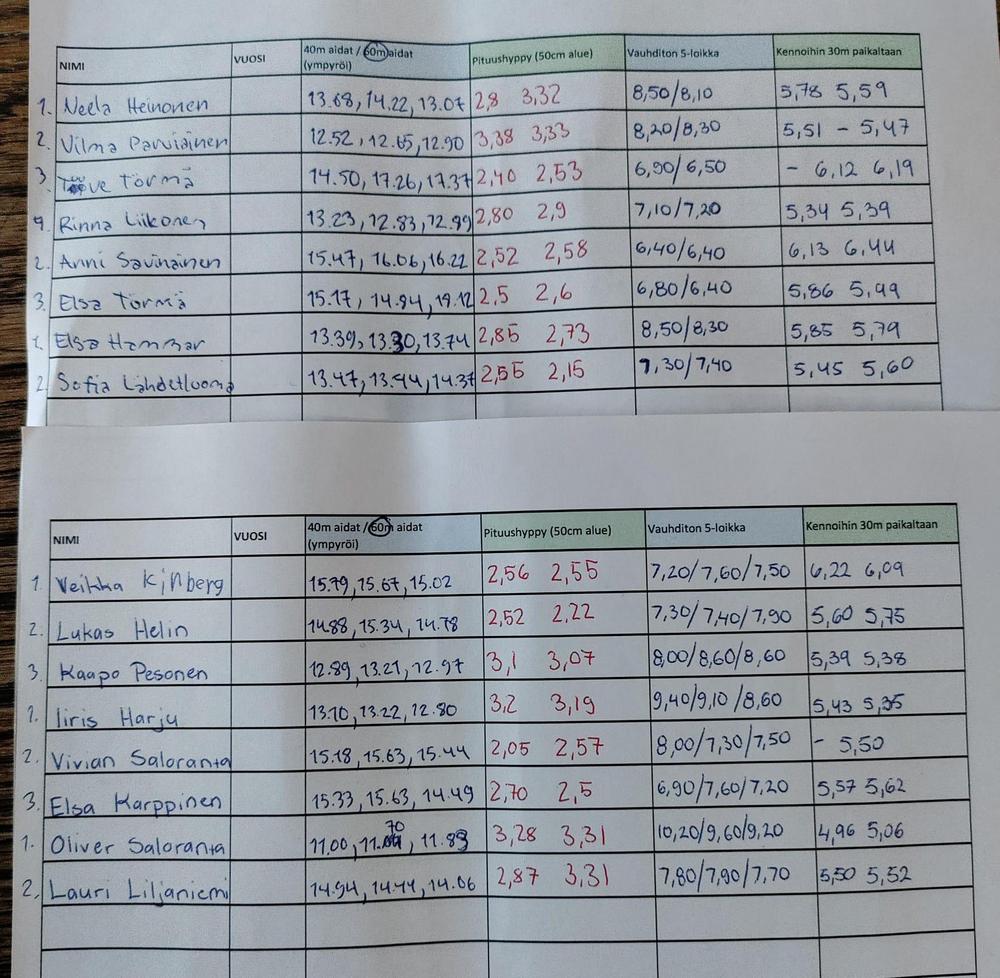 NIMI VUOSI 40m aidat / 60m aidat (ympyröi) Pituushyppy (50cm alue) Vauhditon 5-loikka Kennoihin 30m paikaltaan
1. Neela Heinonen 13.68, 14.22, 13.07 2,8 3,32 8,50/8,10 5,78 5,59
2. Vilma Parviainen 12.52, 12.65, 12.90 3,38 3,33 8,20/8,30 5,51 - 5,47
3. Tove Törmä 14.50, 17.26, 17.37 2,40 2,53 6,90/6,50 - 6,12 6,19
Rinna Liikonen 13.23, 12.83, 12.89 2,80 2,9 7,10/7,20 5,34 5,39
2. Anni Savinainen 15.47, 16.06, 16.22 2,52 2,58 6,40/6,40 6,13 6,44
3. Elsa Törmä 15.17, 14.94, 19.12 2,5 2,6 6,80/6,40 5,86 5,99
1. Elsa Hammar 13.39, 13.30, 13.74 2,85 2,73 8,50/8,30 5,85 5,79
2. Sofia Lähdetluoma 13.47, 13.44, 14.37 2,55 2,15 7,30/7,40 5,45 5,60
NIMI VUOSI 40m aidat / 60m aidat (ympyröi) Pituushyppy (50cm alue) Vauhditon 5-loikka Kennoihin 30m paikaltaan
1. Veikka Kinberg 15.79, 15.67, 15.02 2,56 2,55 7,20/7,60/7,50 6,22 6,09
2. Lukas Helin 14.88, 15.34, 14.78 2,52 2,22 7,30/7,40/7,90 5,60 5,75
3. Kaapo Pesonen 12.89, 13.21, 12.97 3,1 3,07 8,00/8,60/8,60 5,39 5,38
1. Iiris Harju 13.10, 13.22, 12.80 3,2 3,19 9,40/9,10/8,60 5,43 5,35
2. Vivian Saloranta 15.18, 15.63, 15.44 2,05 2,57 8,00/7,30/7,50 - 5,50
3. Elsa Karppinen 15.33, 15.63, 14.49 2,70 2,5 6,90/7,60/7,20 5,57 5,62
1. Oliver Saloranta 11.00, 11.70, 11.89 3,28 3,31 10,20/9,60/9,20 4,96 5,06
2. Lauri Liljaniemi 14.94, 14.44, 14.06 2,87 3,31 7,80/7,90/7,70 5,50 5,52